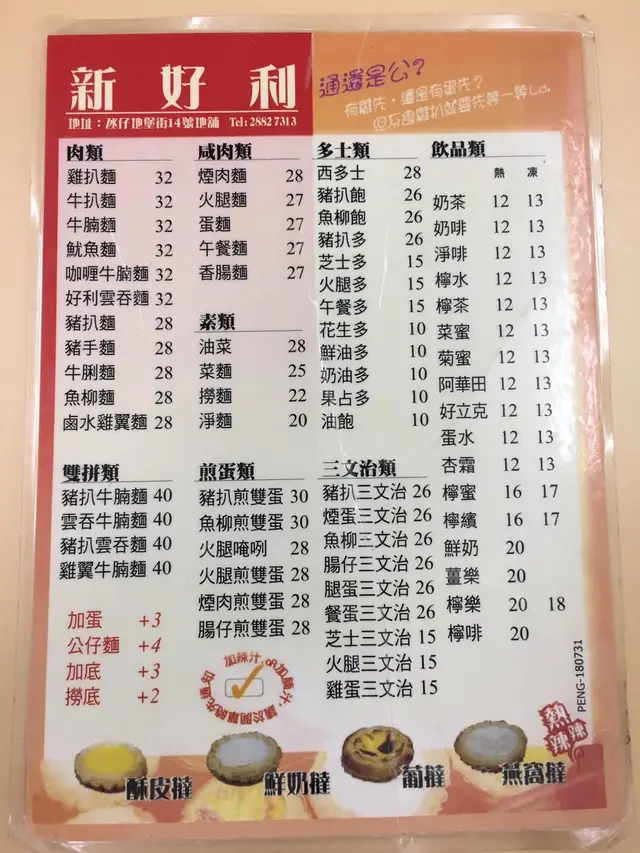 新好利
地址：氹仔地堡街14號地舖 Tel: 2882 7313
通還是公？
有雞先，還是有蛋先？
肉類
雞扒麵 32
牛扒麵 32
牛腩麵 32
魷魚麵 32
咖喱牛腩麵 32
好利雲吞麵 32
豬扒麵 28
豬手麵 28
牛脷麵 28
魚柳麵 28
鹵水雞翼麵 28
咸肉類
煙肉麵 28
火腿麵 27
蛋麵 27
午餐麵 27
香腸麵 27
素類
油菜 28
菜麵 25
撈麵 22
淨麵 20
多士類
西多士 28
豬扒飽 26
魚柳飽 26
豬扒多 26
芝士多 15
火腿多 15
午餐多 15
花生多 10
鮮油多 10
奶油多 10
果占多 10
油飽 10
飲品類
熱 凍
奶茶 12 13
奶啡 12 13
淨啡 12 13
檸水 12 13
檸茶 12 13
菜蜜 12 13
菊蜜 12 13
阿華田 12 13
好立克 12 13
蛋水 12 13
杏霜 12 13
檸蜜 16 17
檸檳 16 17
鮮奶 20
薑樂 20
檸樂 20 18
檸啡 20
雙拼類
豬扒牛腩麵 40
雲吞牛腩麵 40
豬扒雲吞麵 40
雞翼牛腩麵 40
加蛋 +3
公仔麵 +4
加底 +3
撈底 +2
煎蛋類
豬扒煎雙蛋 30
魚柳煎雙蛋 30
火腿唵咧 28
火腿煎雙蛋 28
煙肉煎雙蛋 28
腸仔煎雙蛋 28
加辣汁.oR加腩汁,請於開單時先通知
三文治類
豬扒三文治 26
煙蛋三文治 26
魚柳三文治 26
腸仔三文治 26
腿蛋三文治 26
餐蛋三文治 26
芝士三文治 15
火腿三文治 15
雞蛋三文治 15
PENG-180731
熱辣辣
酥皮撻
鮮奶撻
葡撻
燕窩撻